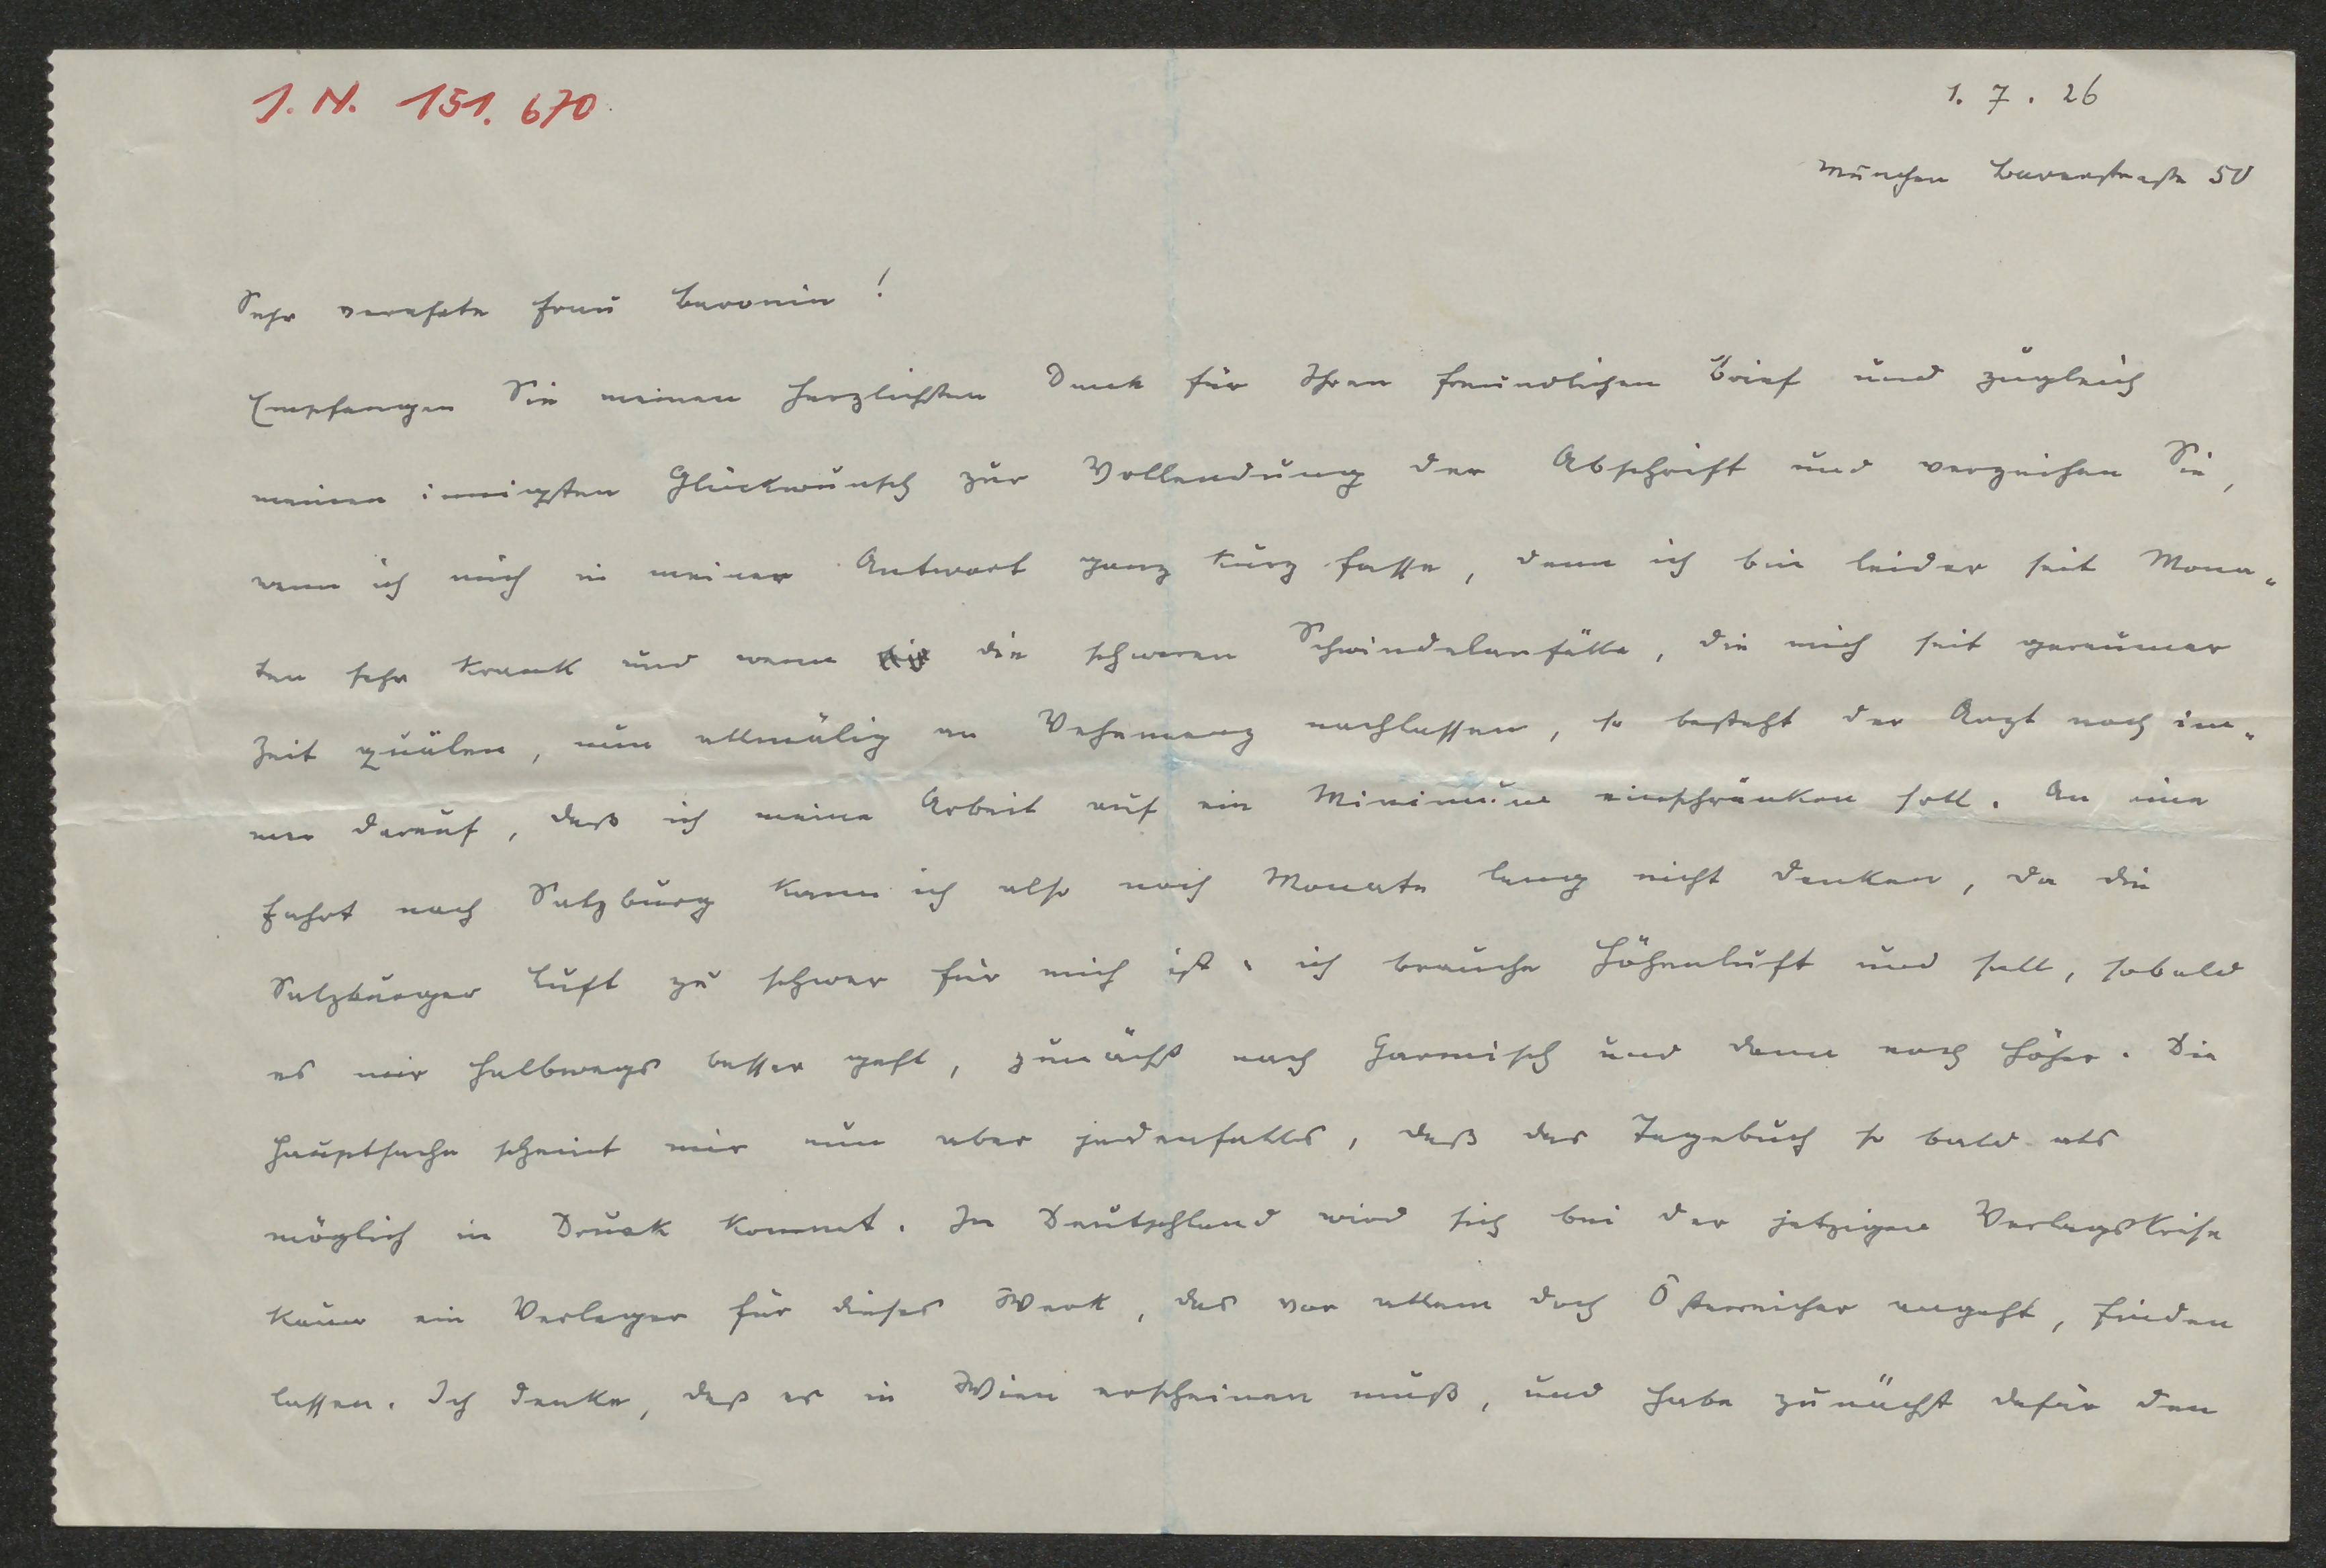 I. N. 151.670
1. 7. 26
München Barerstraße 50
Sehr verehrte Frau Baronin!
Empfangen Sie meinen herzlichsten Dank für Ihren freundlichen Brief und zugleich
meinen innigsten Glückwunsch zur Vollendung der Abschrift und verzeihen Sie,
wenn ich mich in meiner Antwort ganz kurz fasse, denn ich bin leider seit Mona-
ten sehr krank und wenn die schweren Schwindelanfälle, die mich seit geraumer
Zeit quälen, nun allmälig an Vehemenz nachlassen, so besteht der Arzt noch im-
mer darauf, daß ich meine Arbeit auf ein Minimum einschränken soll. An eine
Fahrt nach Salzburg kann ich also noch Monate lang nicht denken, da die
Salzburger Luft zu schwer für mich ist. ich brauche Höhenluft und soll, sobald
es mir halbwegs besser geht, zunächst nach Garmisch und dann noch höher. Die
Hauptsache scheint mir nun aber jedenfalls, daß das Tagebuch so bald als
möglich in Druck kommt. In Deutschland wird sich bei der jetzigen Verlagskrise
kaum ein Verleger für dieses Werk, das vor allem doch Österreicher angeht, finden
lassen. Ich denke, daß es in Wien erscheinen muß, und habe zunächst dafür den